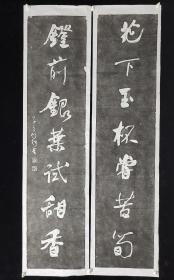 花下玉杯嘗苦筍
鐙前銀葉試甜香